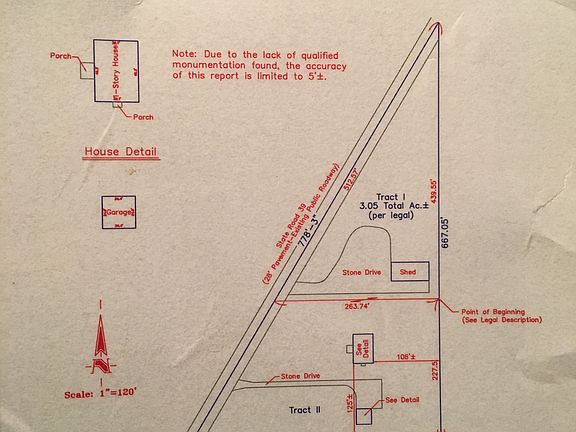 Porch
1-Story House
Porch
House Detail
Note: Due to the lack of qualified
monumentation found, the accuracy
of this report is limited to 5'±.
Garage
Scale: 1"=120'
State Road 39
(28' Pavement-Existing Public Roadway)
778'-3"
512.57'
Tract I
3.05 Total Ac.±
(per legal)
439.55'
667.05'
Stone Drive
Shed
263.74'
Point of Beginning
(See Legal Description)
See
Detail
108'±
227.5
Stone Drive
125'±
See Detail
Tract II